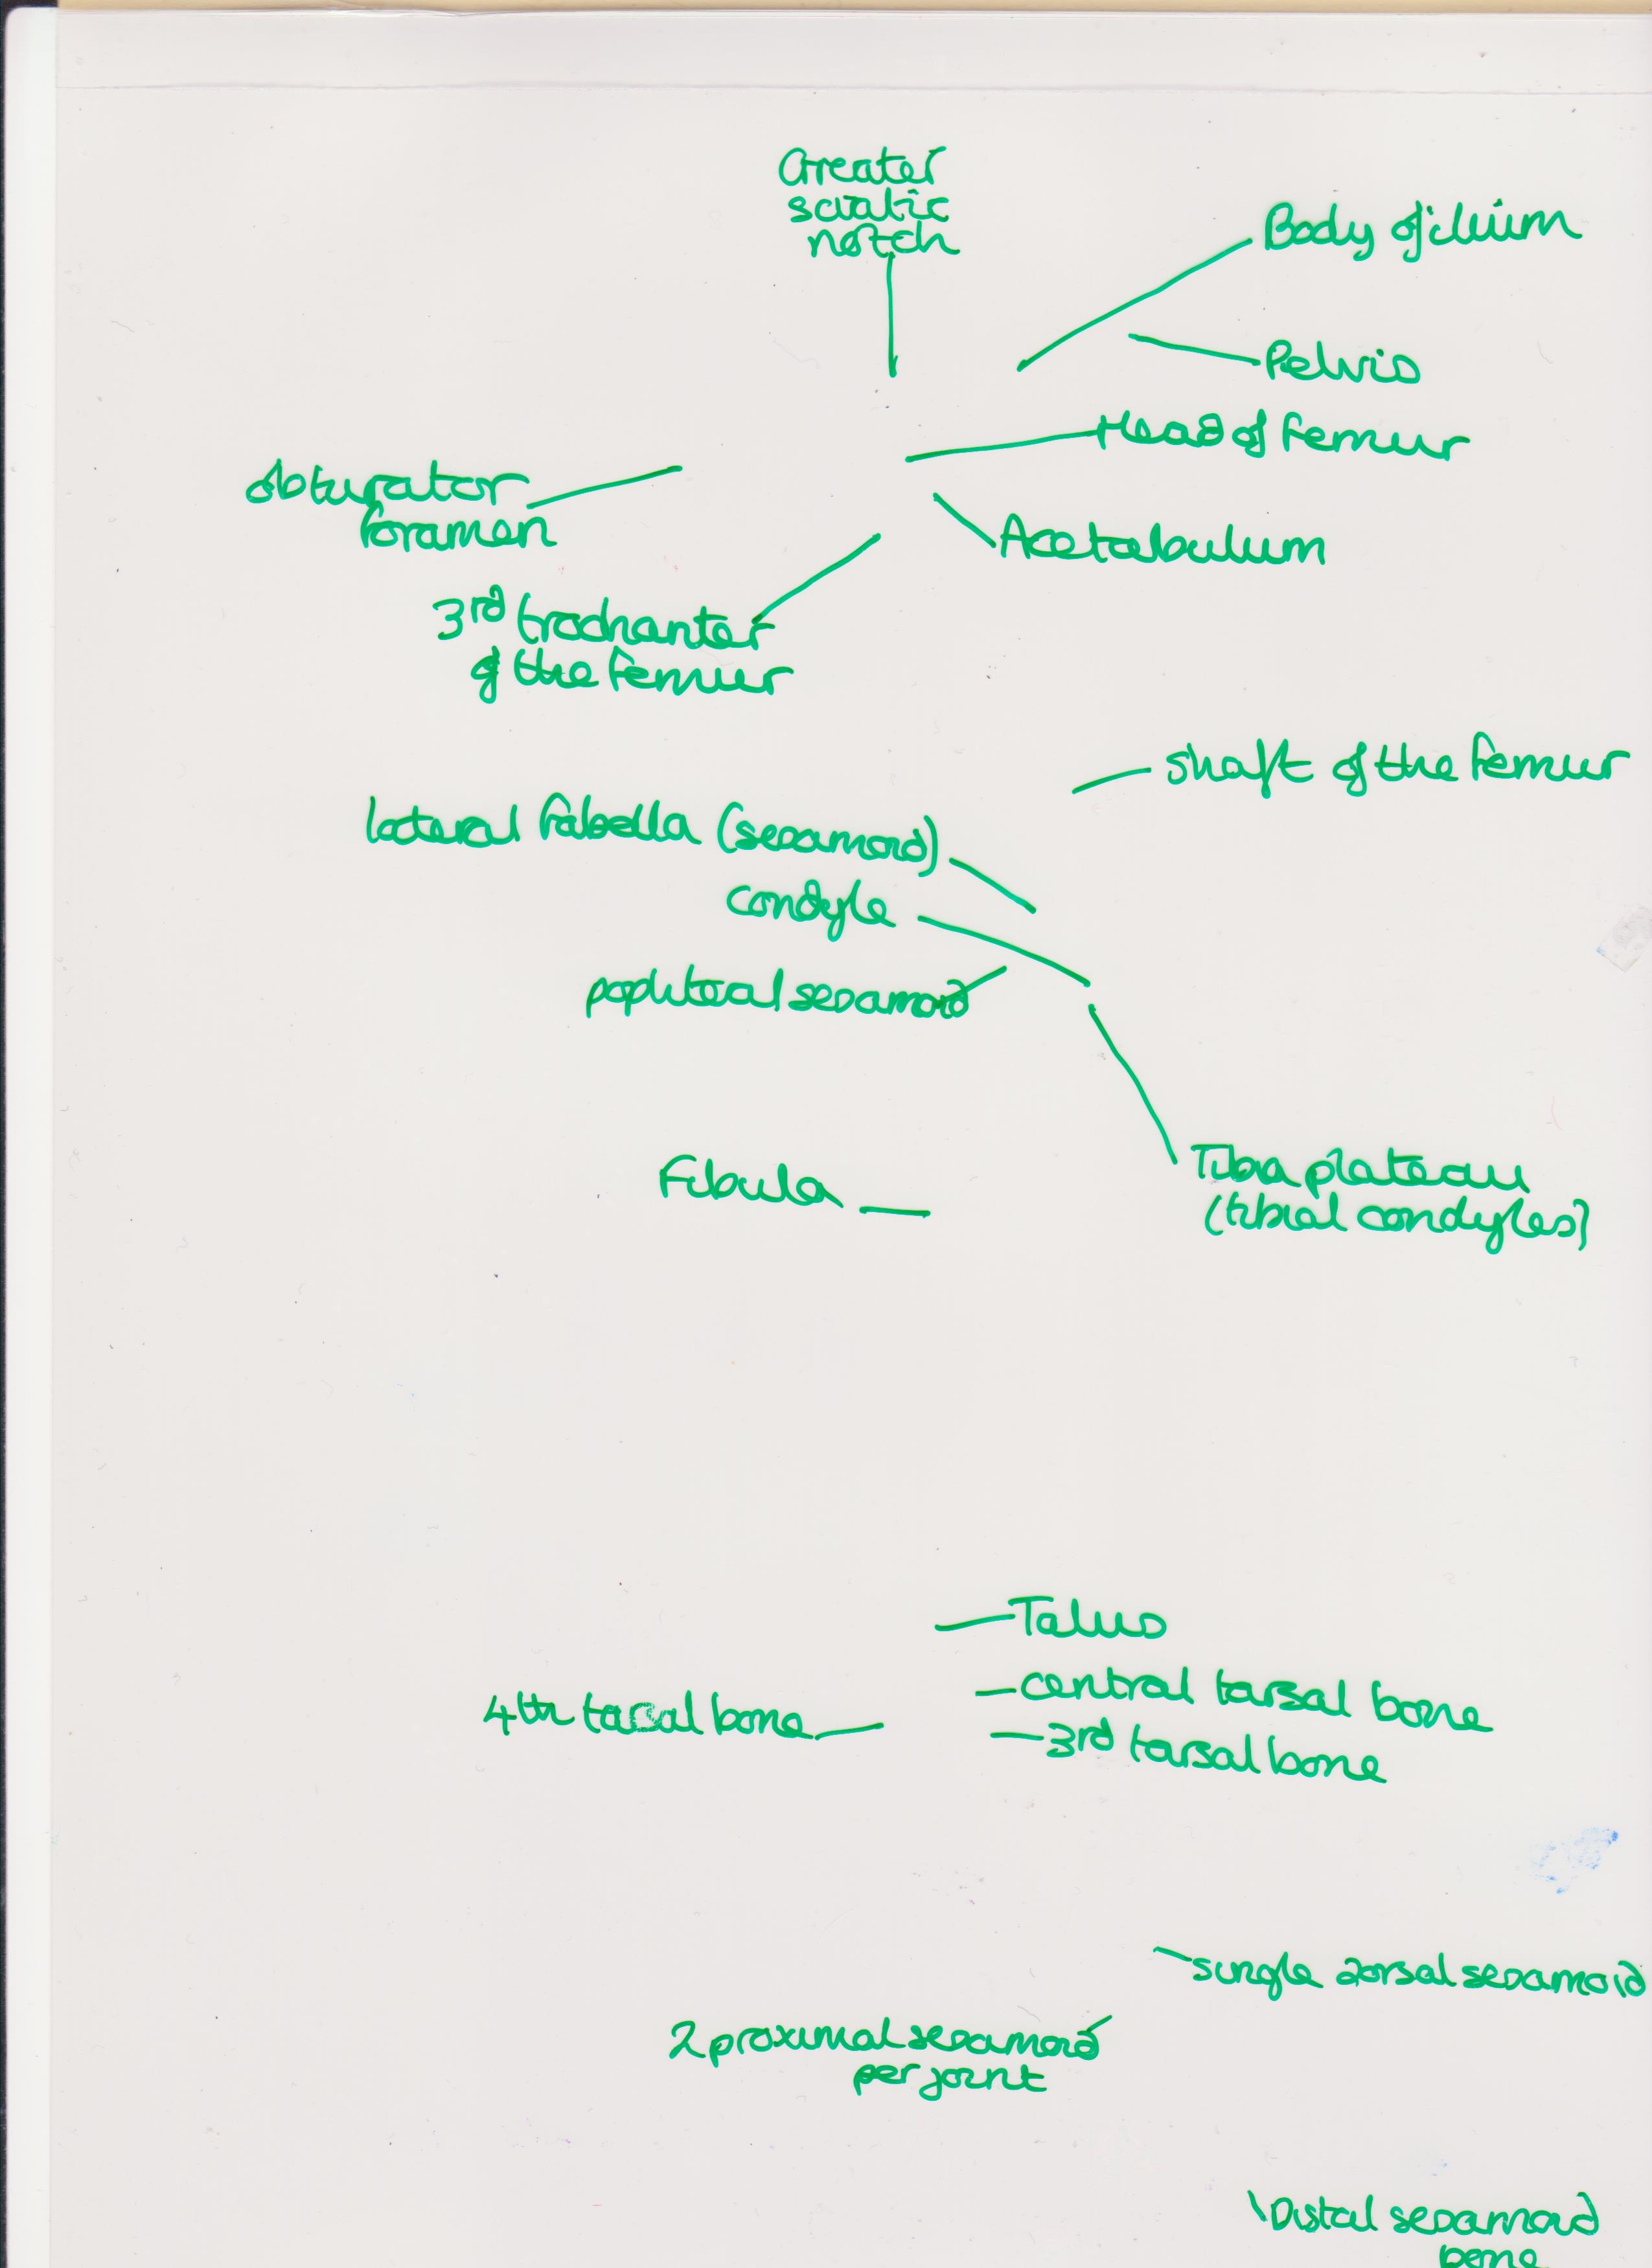 Greater
sciatic
notch
Body of ilium
Pelvis
Head of Femur
obturator
foramen
Acetabulum
3rd trochanter
of the Femur
shaft of the Femur
lateral fabella (sesamoid)
condyle
popliteal sesamoid
Tibia plateau
(tibial condyles)
Fibula
Talus
central tarsal bone
4th tarsal bone
3rd tarsal bone
single dorsal sesamoid
2 proximal sesamoid
per joint
Distal sesamoid
bone